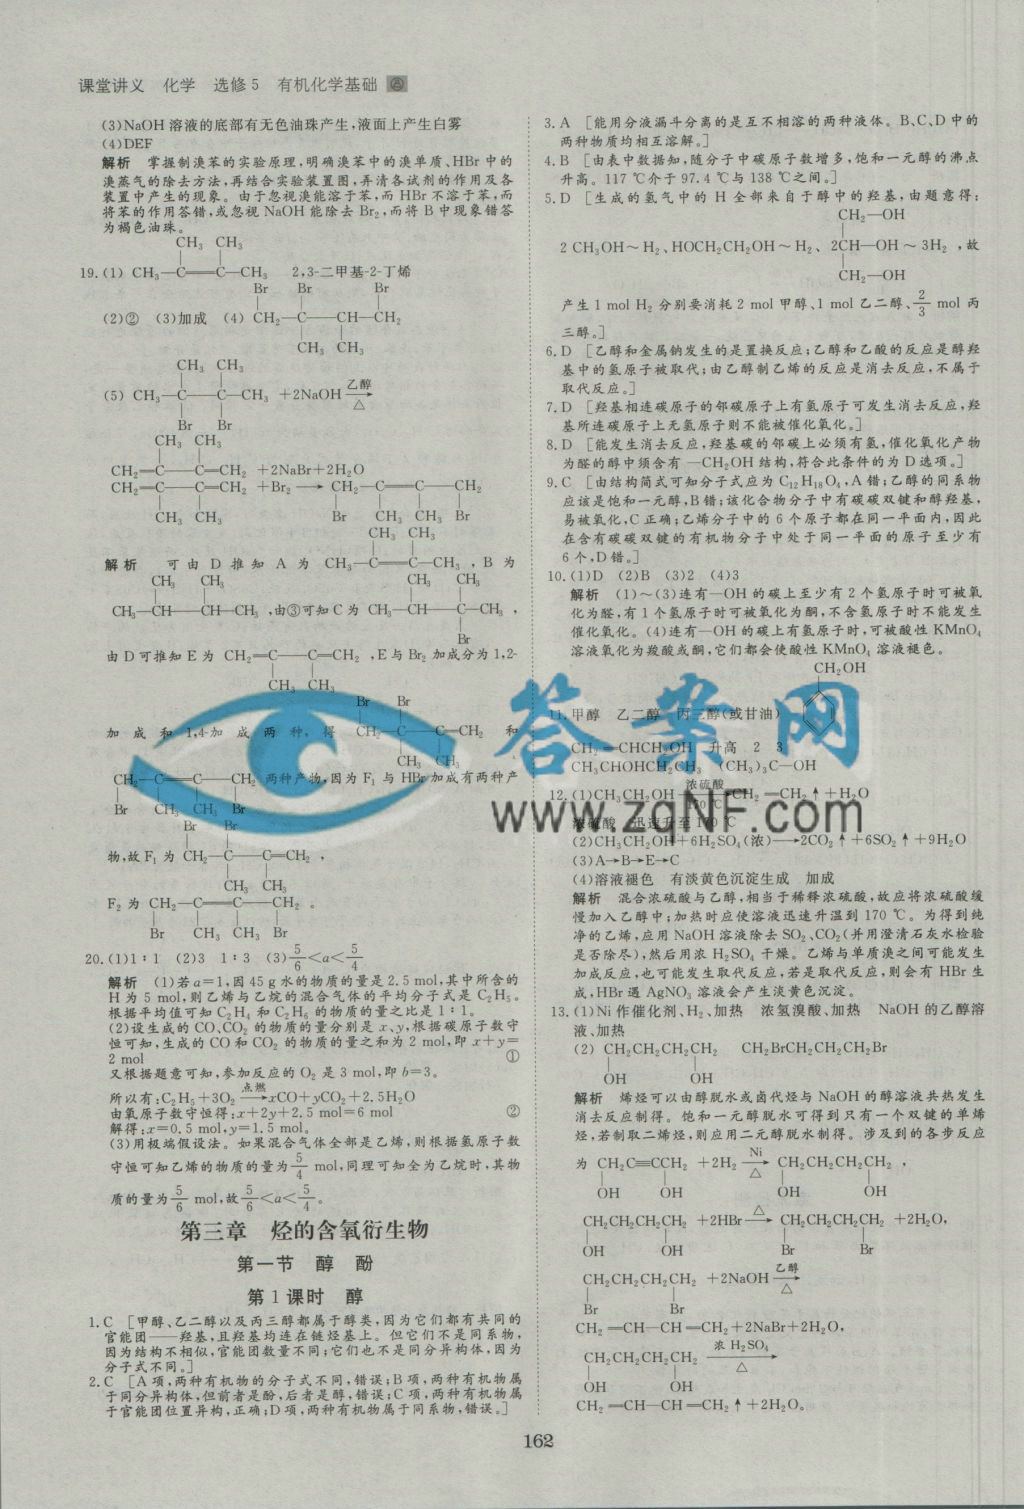 课堂讲义 化学 选修5 有机化学基础
(3)NaOH 溶液的底部有无色油珠产生,液面上产生白雾
(4)DEF
解析 掌握制溴苯的实验原理,明确溴苯中的溴单质、HBr 中的
溴蒸气的除去方法,再结合实验装置图,弄清各试剂的作用及各
装置中产生的现象。由于忽视溴能溶于苯,而 HBr 不溶于苯,而
将苯的作用答错,或忽视 NaOH 能除去 Br₂,而将 B 中现象错答
为褐色油珠。
CH₃ CH₃
19.(1) CH₃—C══C—CH₃ 2,3-二甲基-2-丁烯
Br Br Br
(2)② (3)加成 (4) CH₂—C—CH—CH₂
CH₃ CH₃
CH₃ CH₃
(5) CH₃—C—C—CH₃ +2NaOH 乙醇 △ →
Br Br
CH₃ CH₃
CH₂═C—C═CH₂ +2NaBr+2H₂O
CH₂═C—C═CH₂ +Br₂ → CH₂—C══C—CH₂
CH₃ CH₃ Br CH₃ CH₃ Br
CH₃ CH₃
解析 可由 D 推知 A 为 CH₃—C══C—CH₃ , B 为
CH₃ CH₃ CH₃ CH₃
CH₃—CH—CH—CH₃ ,由③可知 C 为 CH₃—CH—C—CH₃ ,
Br
由 D 可推知 E 为 CH₂═C—C═CH₂ ,E 与 Br₂ 加成分为 1,2-
CH₃ CH₃
Br Br
加成和1,4-加成两种,得 CH₂—C—C═CH₂ 和
CH₃ CH₃
CH₂—C══C—CH₂ 两种产物,因为 F₁ 与 HBr 加成有两种产
Br CH₃ CH₃ Br
Br Br
物,故 F₁ 为 CH₂—C—C═CH₂ ,
CH₃ CH₃
F₂ 为 CH₂—C══C—CH₂ 。
Br CH₃ CH₃ Br
20.(1)1∶1 (2)3 1∶3 (3)5/6<a<5/4
解析 (1)若 a=1,因 45 g 水的物质的量是 2.5 mol,其中所含的
H 为 5 mol,则乙烯与乙烷的混合气体的平均分子式是 C₂H₅。
根据平均值可知 C₂H₄ 和 C₂H₆ 的物质的量之比是 1∶1。
(2)设生成的 CO、CO₂ 的物质的量分别是 x、y,根据碳原子数守
恒可知,生成的 CO 和 CO₂ 的物质的量之和为 2 mol,即 x+y=
2 mol ①
又根据题意可知,参加反应的 O₂ 是 3 mol,即 b=3。
所以有:C₂H₅+3O₂ 点燃→ xCO+yCO₂+2.5H₂O
由氧原子数守恒得:x+2y+2.5 mol=6 mol ②
解得:x=0.5 mol,y=1.5 mol。
(3)用极端假设法。如果混合气体全部是乙烯,则根据氢原子数
守恒可知乙烯的物质的量为 5/4 mol,同理可知全为乙烷时,其物
质的量为 5/6 mol,故 5/6<a<5/4。
第三章 烃的含氧衍生物
第一节 醇 酚
第1课时 醇
1.C [甲醇、乙二醇以及丙三醇都属于醇类,因为它们都有共同的
官能团——羟基,且羟基均连在链烃基上。但它们不是同系物,
因为结构不相似,官能团数量不同;它们也不是同分异构体,因为
分子式不同。]
2.C [A项,两种有机物的分子式不同,错误;B项,两种有机物属
于同分异构体,但前者是酚,后者是醇,错误;C项,两种有机物属
于官能团位置异构,正确;D项,两种有机物属于同系物,错误。]
3.A [能用分液漏斗分离的是互不相溶的两种液体。B、C、D中的
两种物质均相互溶解。]
4.B [由表中数据知,随分子中碳原子数增多,饱和一元醇的沸点
升高。117 ℃介于 97.4 ℃与 138 ℃之间。]
5.D [生成的氢气中的 H 全部来自于醇中的羟基,由题意得:
CH₂—OH
2 CH₃OH～H₂、HOCH₂CH₂OH～H₂、2CH—OH～3H₂ ,故
CH₂—OH
产生 1 mol H₂ 分别要消耗 2 mol 甲醇、1 mol 乙二醇、2/3 mol 丙
三醇。]
6.D [乙醇和金属钠发生的是置换反应;乙醇和乙酸的反应是醇羟
基中的氢原子被取代;由乙醇制乙烯的反应是消去反应,不属于
取代反应。]
7.D [羟基相连碳原子的邻碳原子上有氢原子可发生消去反应,羟
基所连碳原子上无氢原子则不能被催化氧化。]
8.D [能发生消去反应,羟基碳的邻碳上必须有氢,催化氧化产物
为醛的醇中须含有—CH₂OH 结构,符合此条件的为 D 选项。]
9.C [由结构简式可知分子式应为 C₁₂H₁₈O₄,A 错;乙醇的同系物
应该是饱和一元醇,B错;该化合物分子中有碳碳双键和醇羟基,
易被氧化,C 正确;乙烯分子中的 6 个原子都在同一平面内,因此
在含有碳碳双键的有机物分子中处于同一平面的原子至少有
6 个,D 错。]
10.(1)D (2)B (3)2 (4)3
解析 (1)～(3)连有—OH 的碳上至少有 2 个氢原子时可被氧
化为醛,有 1 个氢原子时可被氧化为酮,不含氢原子时不能发生
催化氧化。(4)连有—OH 的碳上有氢原子时,可被酸性 KMnO₄
溶液氧化为羧酸或酮,它们都会使酸性 KMnO₄ 溶液褪色。
CH₂OH
11.甲醇 乙二醇 丙三醇(或甘油)
CH₂═CHCH₂OH 升高 2 3
CH₃CHOHCH₂CH₃ (CH₃)₃C—OH
12.(1)CH₃CH₂OH 浓硫酸 170 ℃→ CH₂═CH₂↑+H₂O
浓硫酸 迅速升至 170 ℃
(2)CH₃CH₂OH+6H₂SO₄(浓)→2CO₂↑+6SO₂↑+9H₂O
(3)A→B→E→C
(4)溶液褪色 有淡黄色沉淀生成 加成
解析 混合浓硫酸与乙醇,相当于稀释浓硫酸,故应将浓硫酸缓
慢加入乙醇中;加热时应使溶液迅速升温到 170 ℃。为得到纯
净的乙烯,应用 NaOH 溶液除去 SO₂、CO₂(并用澄清石灰水检验
是否除尽),然后用浓 H₂SO₄ 干燥。乙烯与单质溴之间可能发生
加成反应,也可能发生取代反应,若是取代反应,则会有 HBr 生
成,HBr 遇 AgNO₃ 溶液会产生淡黄色沉淀。
13.(1)Ni 作催化剂、H₂、加热 浓氢溴酸、加热 NaOH 的乙醇溶
液、加热
(2) CH₂CH₂CH₂CH₂ CH₂BrCH₂CH₂CH₂Br
OH OH
解析 烯烃可以由醇脱水或卤代烃与 NaOH 的醇溶液共热发生
消去反应制得。饱和一元醇脱水可得到只有一个双键的单烯
烃,若制取二烯烃,则应用二元醇脱水制得。涉及到的各步反应
为 CH₂C≡CCH₂ +2H₂ Ni △→ CH₂CH₂CH₂CH₂ ,
OH OH OH OH
CH₂CH₂CH₂CH₂ +2HBr △→ CH₂CH₂CH₂CH₂ +2H₂O,
OH OH Br Br
CH₂CH₂CH₂CH₂ +2NaOH 乙醇 △→
Br Br
CH₂═CH—CH═CH₂+2NaBr+2H₂O,
CH₂CH₂CH₂CH₂ 浓 H₂SO₄ △→
OH OH
CH₂═CH—CH═CH₂↑+2H₂O。
答案网
www.zqNF.com
162